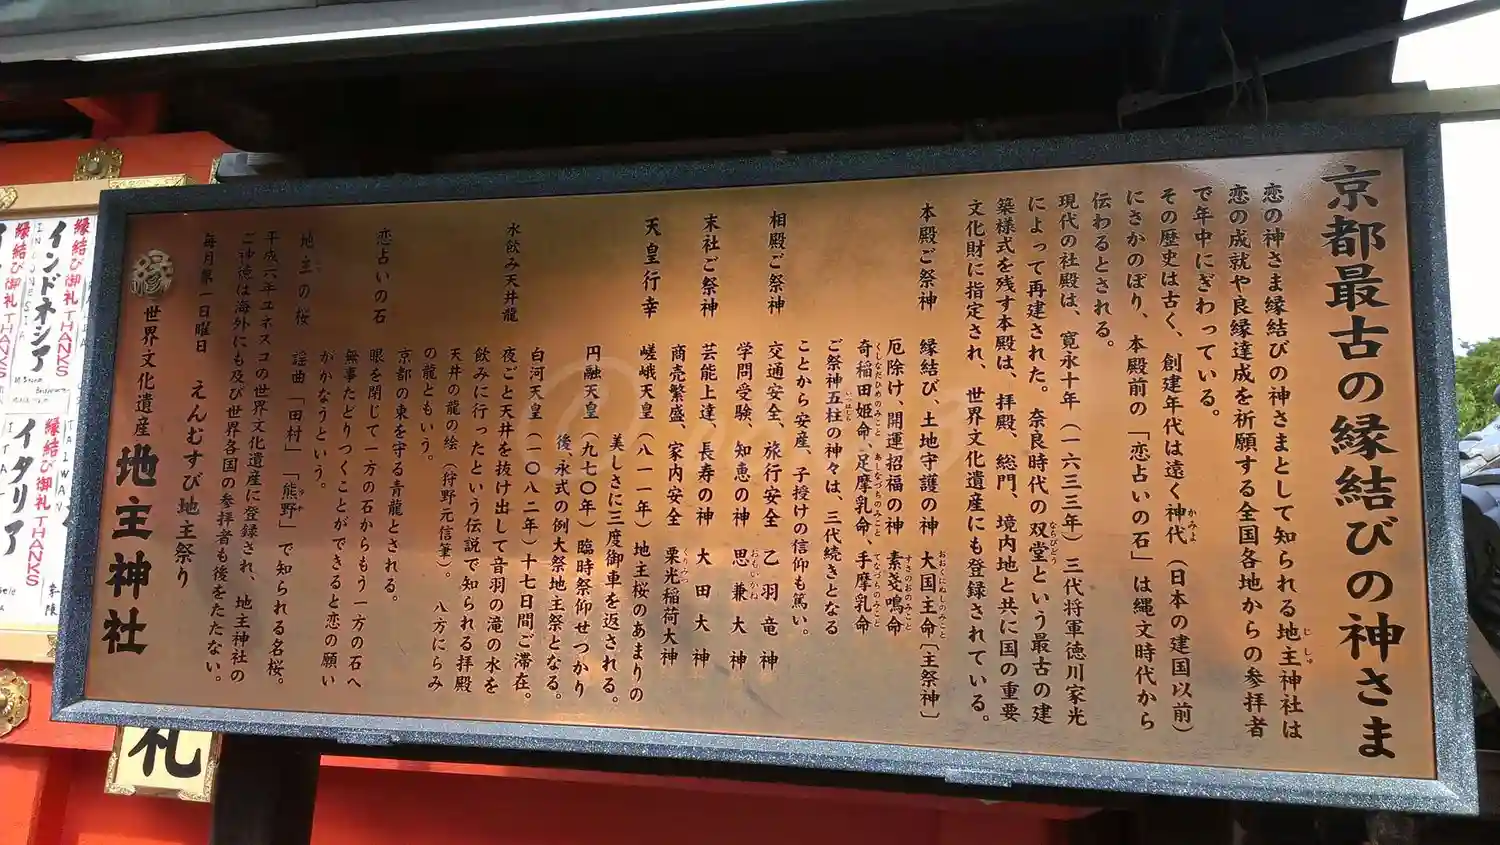 京都最古の縁結びの神さま
恋の神さま縁結びの神さまとして知られる地主神社は
じしゅ
恋の成就や良縁達成を祈願する全国各地からの参拝者
で年中にぎわっている。
その歴史は古く、創建年代は遠く神代（日本の建国以前）
かみよ
にさかのぼり、本殿前の「恋占いの石」は縄文時代から
伝わるとされる。
現代の社殿は、寛永十年（一六三三年）三代将軍徳川家光
によって再建された。奈良時代の双堂という最古の建
ならびどう
築様式を残す本殿は、拝殿、総門、境内地と共に国の重要
文化財に指定され、世界文化遺産にも登録されている。
本殿ご祭神 縁結び、土地守護の神 大国主命〔主祭神〕
おおくにぬしのみこと
厄除け、開運招福の神 素戔嗚命
すさのおのみこと
奇稲田姫命、足摩乳命、手摩乳命
くしなだひめのみこと あしなづちのみこと てなづちのみこと
ご祭神五柱の神々は、三代続きとなる
いつはしら
ことから安産、子授けの信仰も篤い。
相殿ご祭神 交通安全、旅行安全 乙羽竜神
学問受験、知恵の神 思兼大神
おもいかね
末社ご祭神 芸能上達、長寿の神 大田大神
商売繁盛、家内安全 栗光稲荷大神
くりみつ
天皇行幸 嵯峨天皇（八一一年）地主桜のあまりの
美しさに三度御車を返される。
円融天皇（九七〇年）臨時祭仰せつかり
後、永式の例大祭地主祭となる。
白河天皇（一〇八二年）十七日間ご滞在。
水飲み天井龍 夜ごと天井を抜け出して音羽の滝の水を
飲みに行ったという伝説で知られる拝殿
天井の龍の絵（狩野元信筆）。八方にらみ
の龍ともいう。
京都の東を守る青龍とされる。
恋占いの石 眼を閉じて一方の石からもう一方の石へ
無事たどりつくことができると恋の願い
がかなうという。
地主の桜 謡曲「田村」「熊野」で知られる名桜。
ゆや
平成六年ユネスコの世界文化遺産に登録され、地主神社の
ご神徳は海外にも及び世界各国の参拝者も後をたたない。
毎月第一日曜日 えんむすび地主祭り
縁 世界文化遺産 地主神社
縁結び御礼 THANKS
インドネシア
INDONESIA
縁結び御礼 THANKS
TAIWAN
縁結び御礼 THANKS
イタリア
札